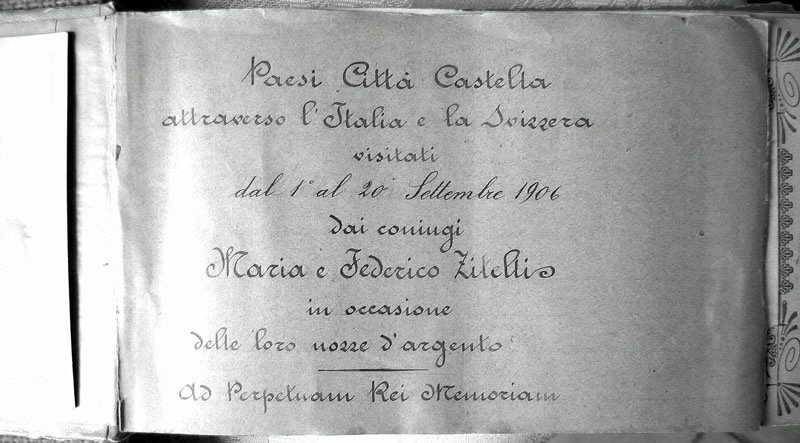 Paesi Città Castella
attraverso l'Italia e la Svizzera
visitati
dal 1° al 20 Settembre 1906
dai coniugi
Maria e Federico Zitelli
in occasione
delle loro nozze d'argento
Ad Perpetuam Rei Memoriam